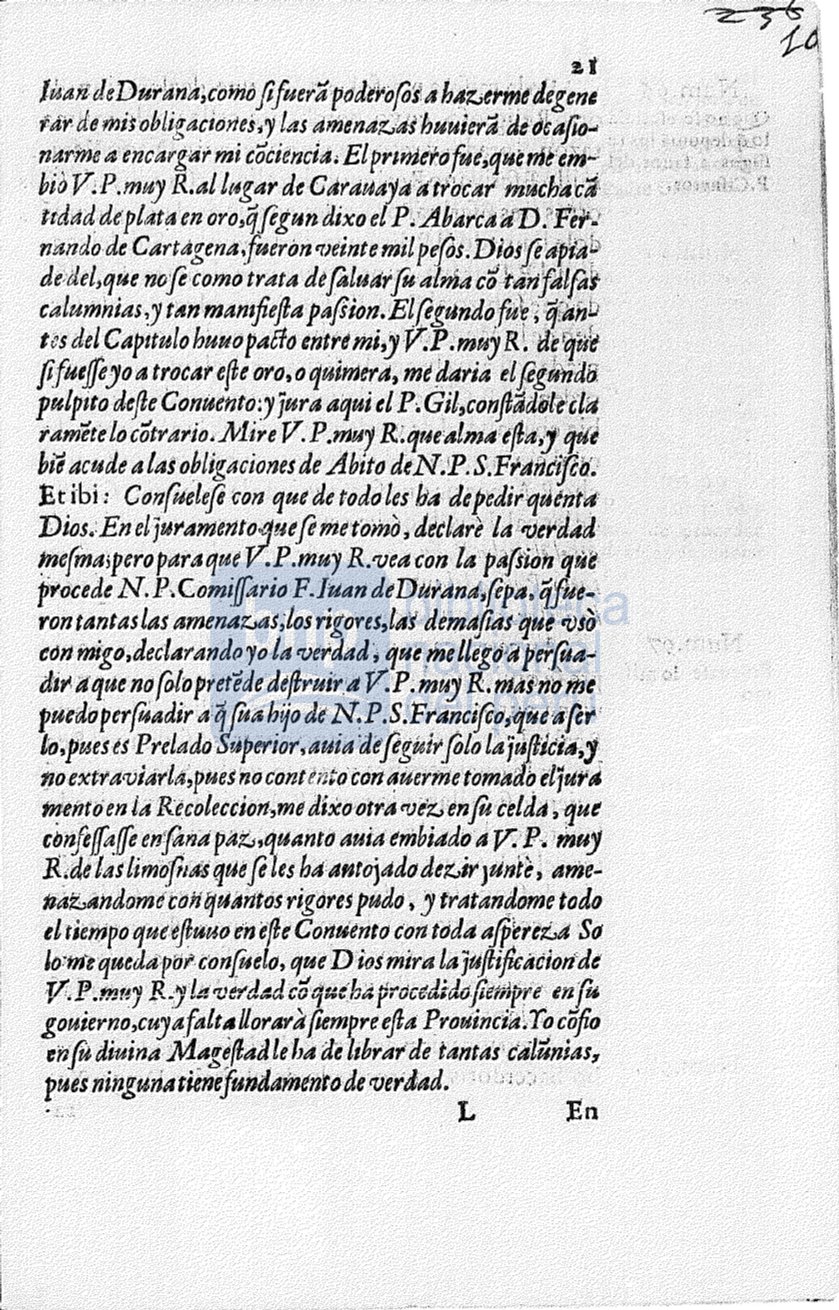 236
10
21
Iuan de Durana, como ſi fuerã poderoſos a hazerme degene
rar de mis obligaciones, y las amenazas huuierã de ocaſio-
narme a encargar mi cõciencia. El primero fue, que me em-
biò V.P.muy R.al lugar de Carauaya a trocar mucha cã
tidad de plata en oro, q̃ ſegun dixo el P. Abarca a D. Fer-
nando de Cartagena, fueron veinte mil peſos. Dios ſe apia-
de del, que no ſe como trata de ſaluar ſu alma cõ tan falſas
calumnias, y tan manifieſta paſsion. El ſegundo fue, q̃ an-
tes del Capitulo huuo pacto entre mi, y V.P.muy R. de que
ſi fueſſe yo a trocar eſte oro, o quimera, me daria el ſegundo
pulpito deſte Conuento: y jura aqui el P. Gil, conſtãdole cla
ramẽte lo cõtrario. Mire V.P.muy R.que alma eſta, y que
biẽ acude a las obligaciones de Abito de N.P.S.Franciſco.
Et ibi: Conſueleſe con que de todo les ha de pedir quenta
Dios. En el juramento que ſe me tomò, declarè la verdad
meſma; pero para que V.P.muy R.vea con la paſsion que
procede N.P.Comiſſario F.Iuan de Durana, ſepa, q̃ fue-
ron tantas las amenazas, los rigores, las demaſias que vsò
con migo, declarando yo la verdad, que me llegò a perſua-
dir a que no ſolo pretẽde deſtruir a V.P.muy R.mas no me
puedo perſuadir a q̃ ſua hijo de N.P.S.Franciſco, que a ſer
lo, pues es Prelado Superior, auia de ſeguir ſolo la juſticia, y
no extraviarla, pues no contento con auerme tomado el jura
mento en la Recoleccion, me dixo otra vez en ſu celda, que
confeſſaſſe en ſana paz, quanto auia embiado a V.P. muy
R.de las limoſnas que ſe les ha antojado dezir juntè, ame-
nazandome con quantos rigores pudo, y tratandome todo
el tiempo que eſtuuo en eſte Conuento con toda aſpereza So
lo me queda por conſuelo, que Dios mira la juſtificacion de
V.P.muy R.y la verdad cõ que ha procedido ſiempre en ſu
gouierno, cuya falta llorarà ſiempre eſta Prouincia. Yo cõfio
en ſu diuina Mageſtad le ha de librar de tantas calũnias,
pues ninguna tiene fundamento de verdad.
L En
bnp biblioteca
nacional
del perú